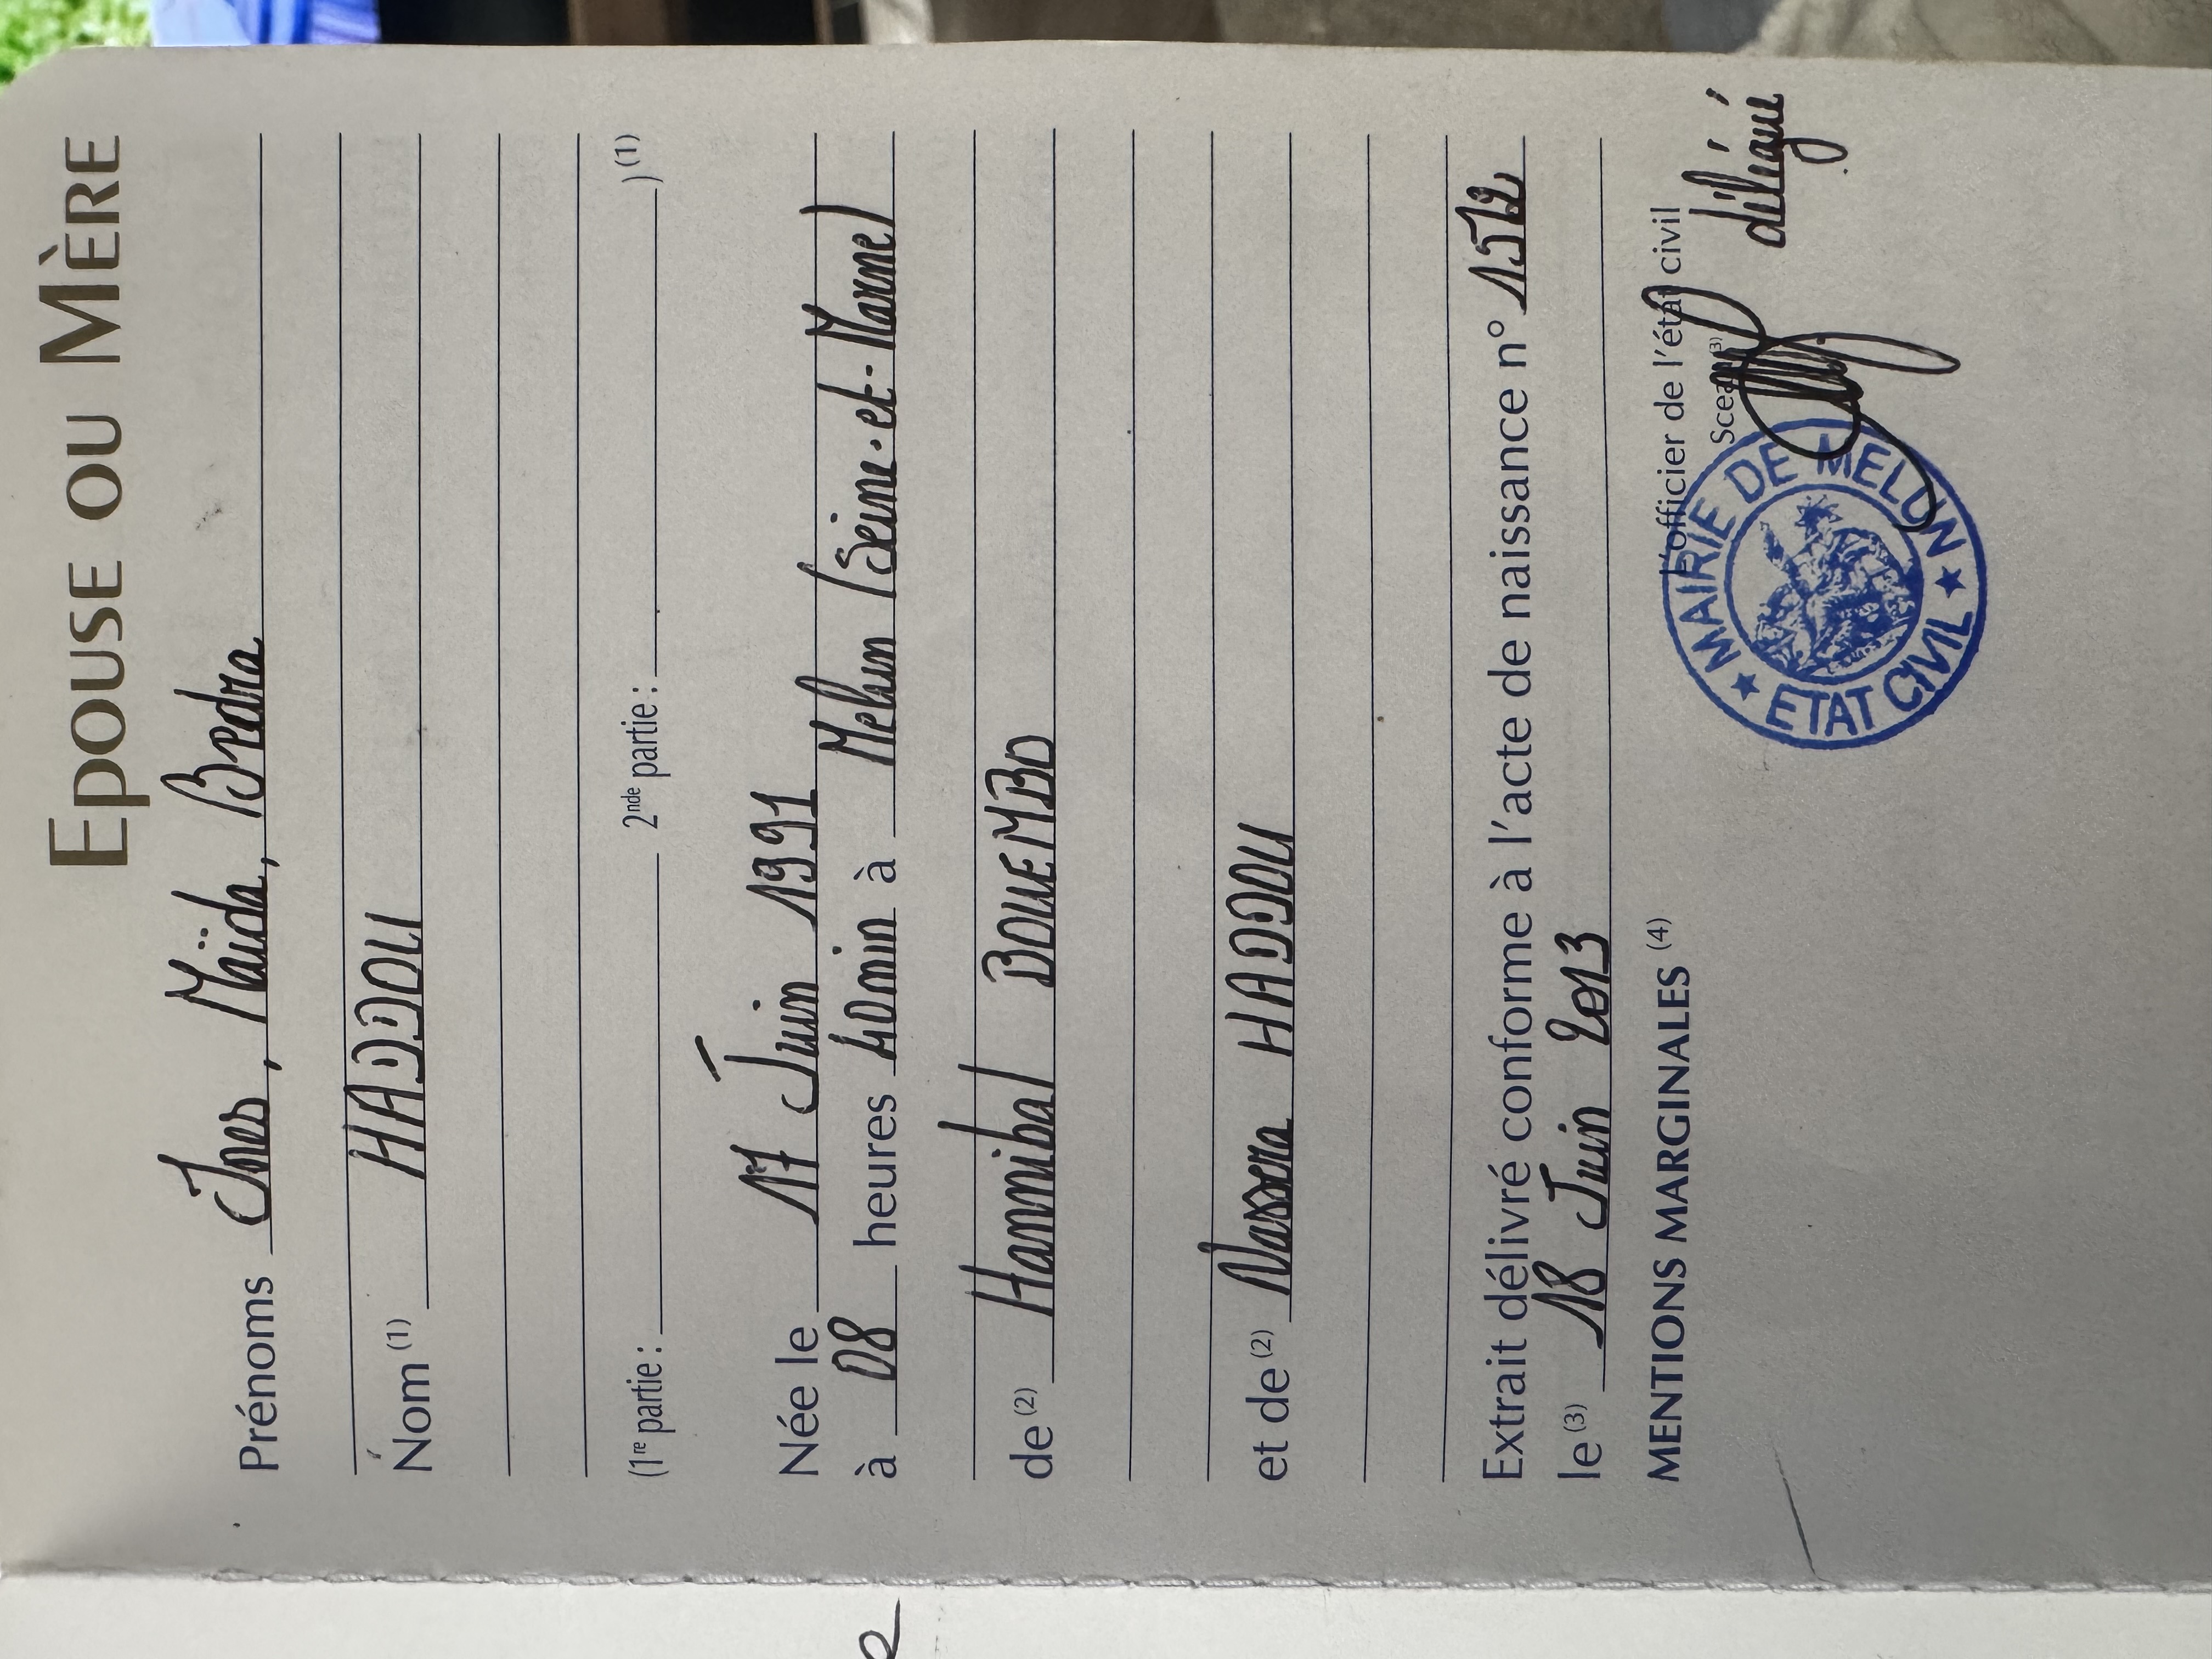 EPOUSE OU MÈRE
Prénoms Ines, Maïda, Bedra
Nom (1) HADDOU
(1re partie : 2nde partie : ) (1)
Née le 17 Juin 1991
à 08 heures 40min à Melun (Seine-et-Marne)
de (2) Hannibal BOUEMBO
et de (2) Nassera HADDOU
Extrait délivré conforme à l'acte de naissance n° 1572
le (3) 18 Juin 2013
L'officier de l'état civil
Sceau (3)
délégué
MENTIONS MARGINALES (4)
MAIRIE DE MELUN
★ ETAT CIVIL ★